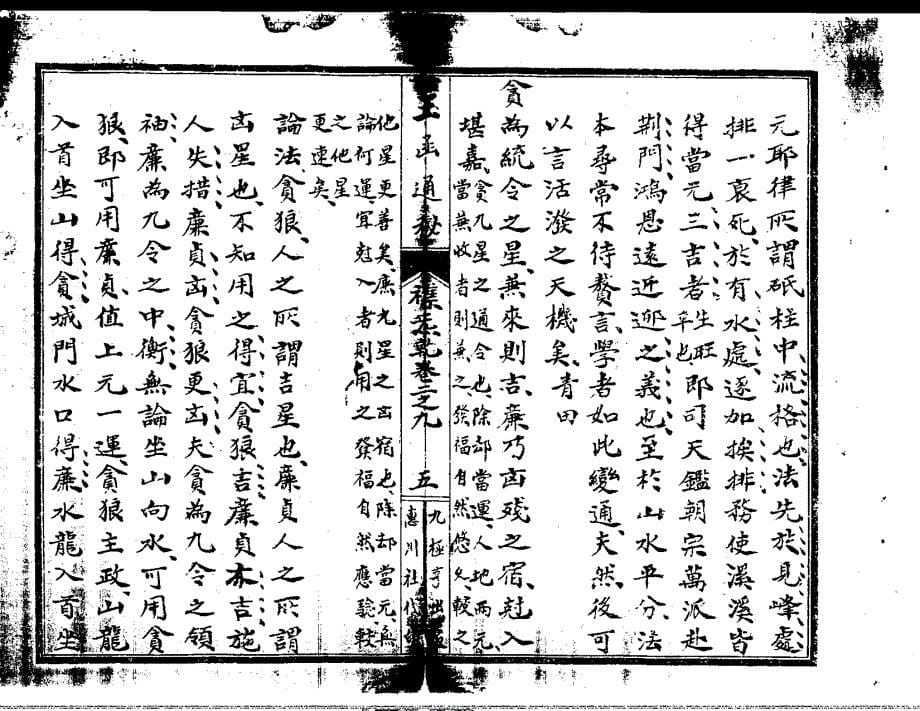 元耶律所謂砥柱中流格也法先於見峰處
排一衰死於有水處逐加挨排務使溪溪皆
得當元三吉者生旺卒也即司天鑑朝宗萬派赴
荆門鴻恩遠近迎之義也至於山水平分法
本尋常不待贅言學者如此變通夫然後可
以言活潑之天機矣青田
貪為統令之星兼來則吉廉乃凶殘之宿尅入
堪嘉貪九星之通令也除却當運人地兩元
當兼收者則兼之發福自然悠久較之
玉函通秘
卷三之九
五
九極亨出
惠川社代
他星更善矣廉九星之凶宿也除却當元無
論何運宜尅入者則用之發福自然應驗較
之他星
更速矣
論法貪狼人之所謂吉星也廉貞人之所謂
凶星也不知用之得宜貪狼吉廉貞亦吉施
人失措廉貞凶貪狼更凶夫貪為九令之領
袖廉為九令之中衡無論坐山向水可用貪
狼即可用廉貞值上元一運貪狼主政山龍
入首坐山得貪城門水口得廉水龍入首坐